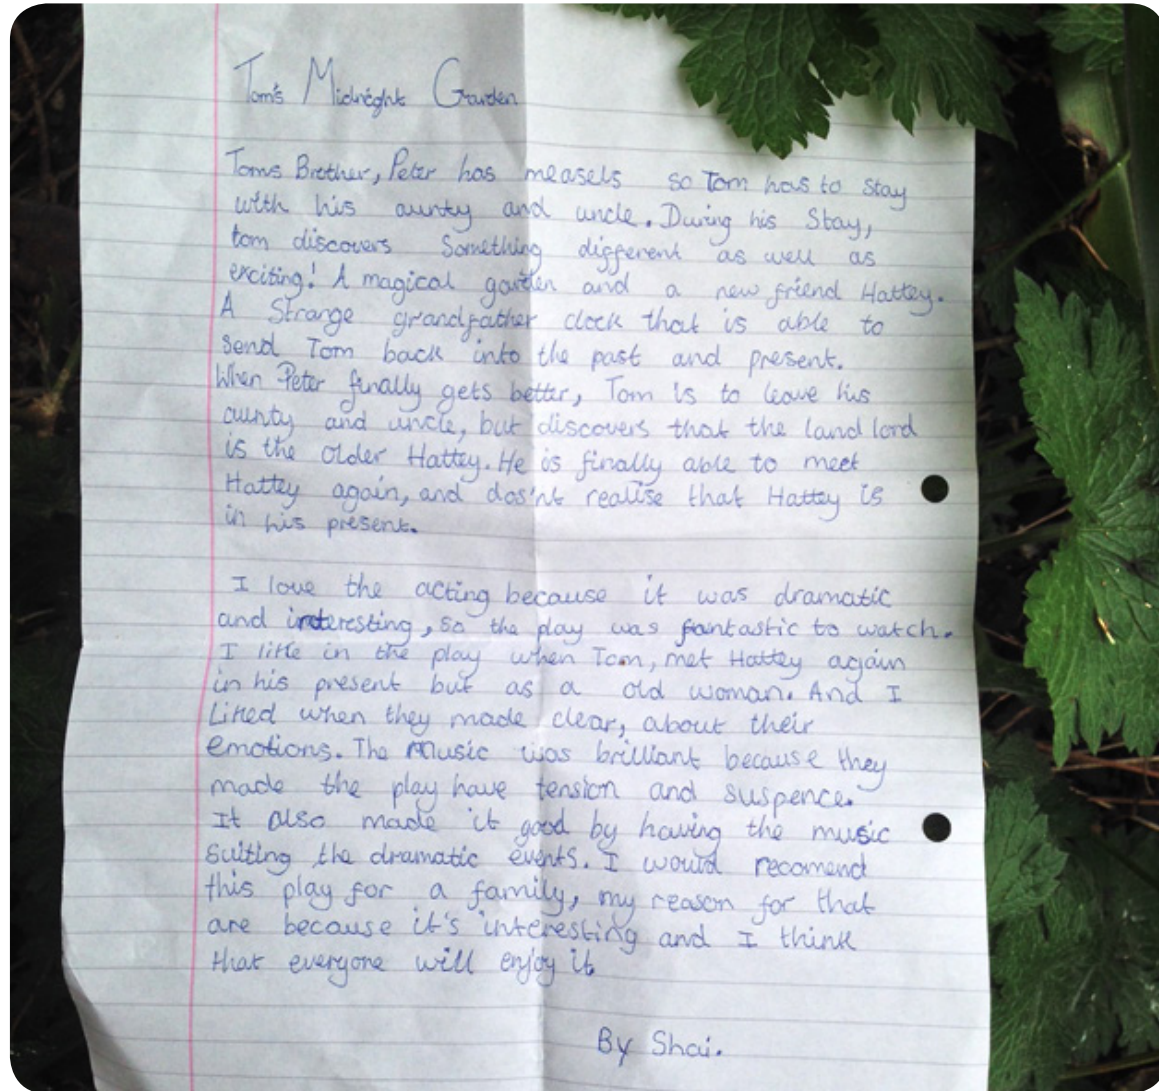 Tom's Midnight Garden
Toms Brother, Peter has measels so Tom has to stay
with his aunty and uncle. During his Stay,
tom discovers Something different as well as
exciting! A magical garden and a new friend Hattey.
A Strange grandfather clock that is able to
send Tom back into the past and present.
When Peter finally gets better, Tom is to leave his
aunty and uncle, but discovers that the land lord
is the older Hattey. He is finally able to meet
Hattey again, and dos'nt realise that Hattey is
in his present.
I love the acting because it was dramatic
and interesting, so the play was fantastic to watch.
I like in the play when Tom, met Hattey again
in his present but as a old woman. And I
Liked when they made clear, about their
emotions. The Music was brilliant because they
made the play have tension and suspence.
It also made it good by having the music
suiting the dramatic events. I would recomend
this play for a family, my reason for that
are because it's interesting and I think
that everyone will enjoy it.
By Shai.